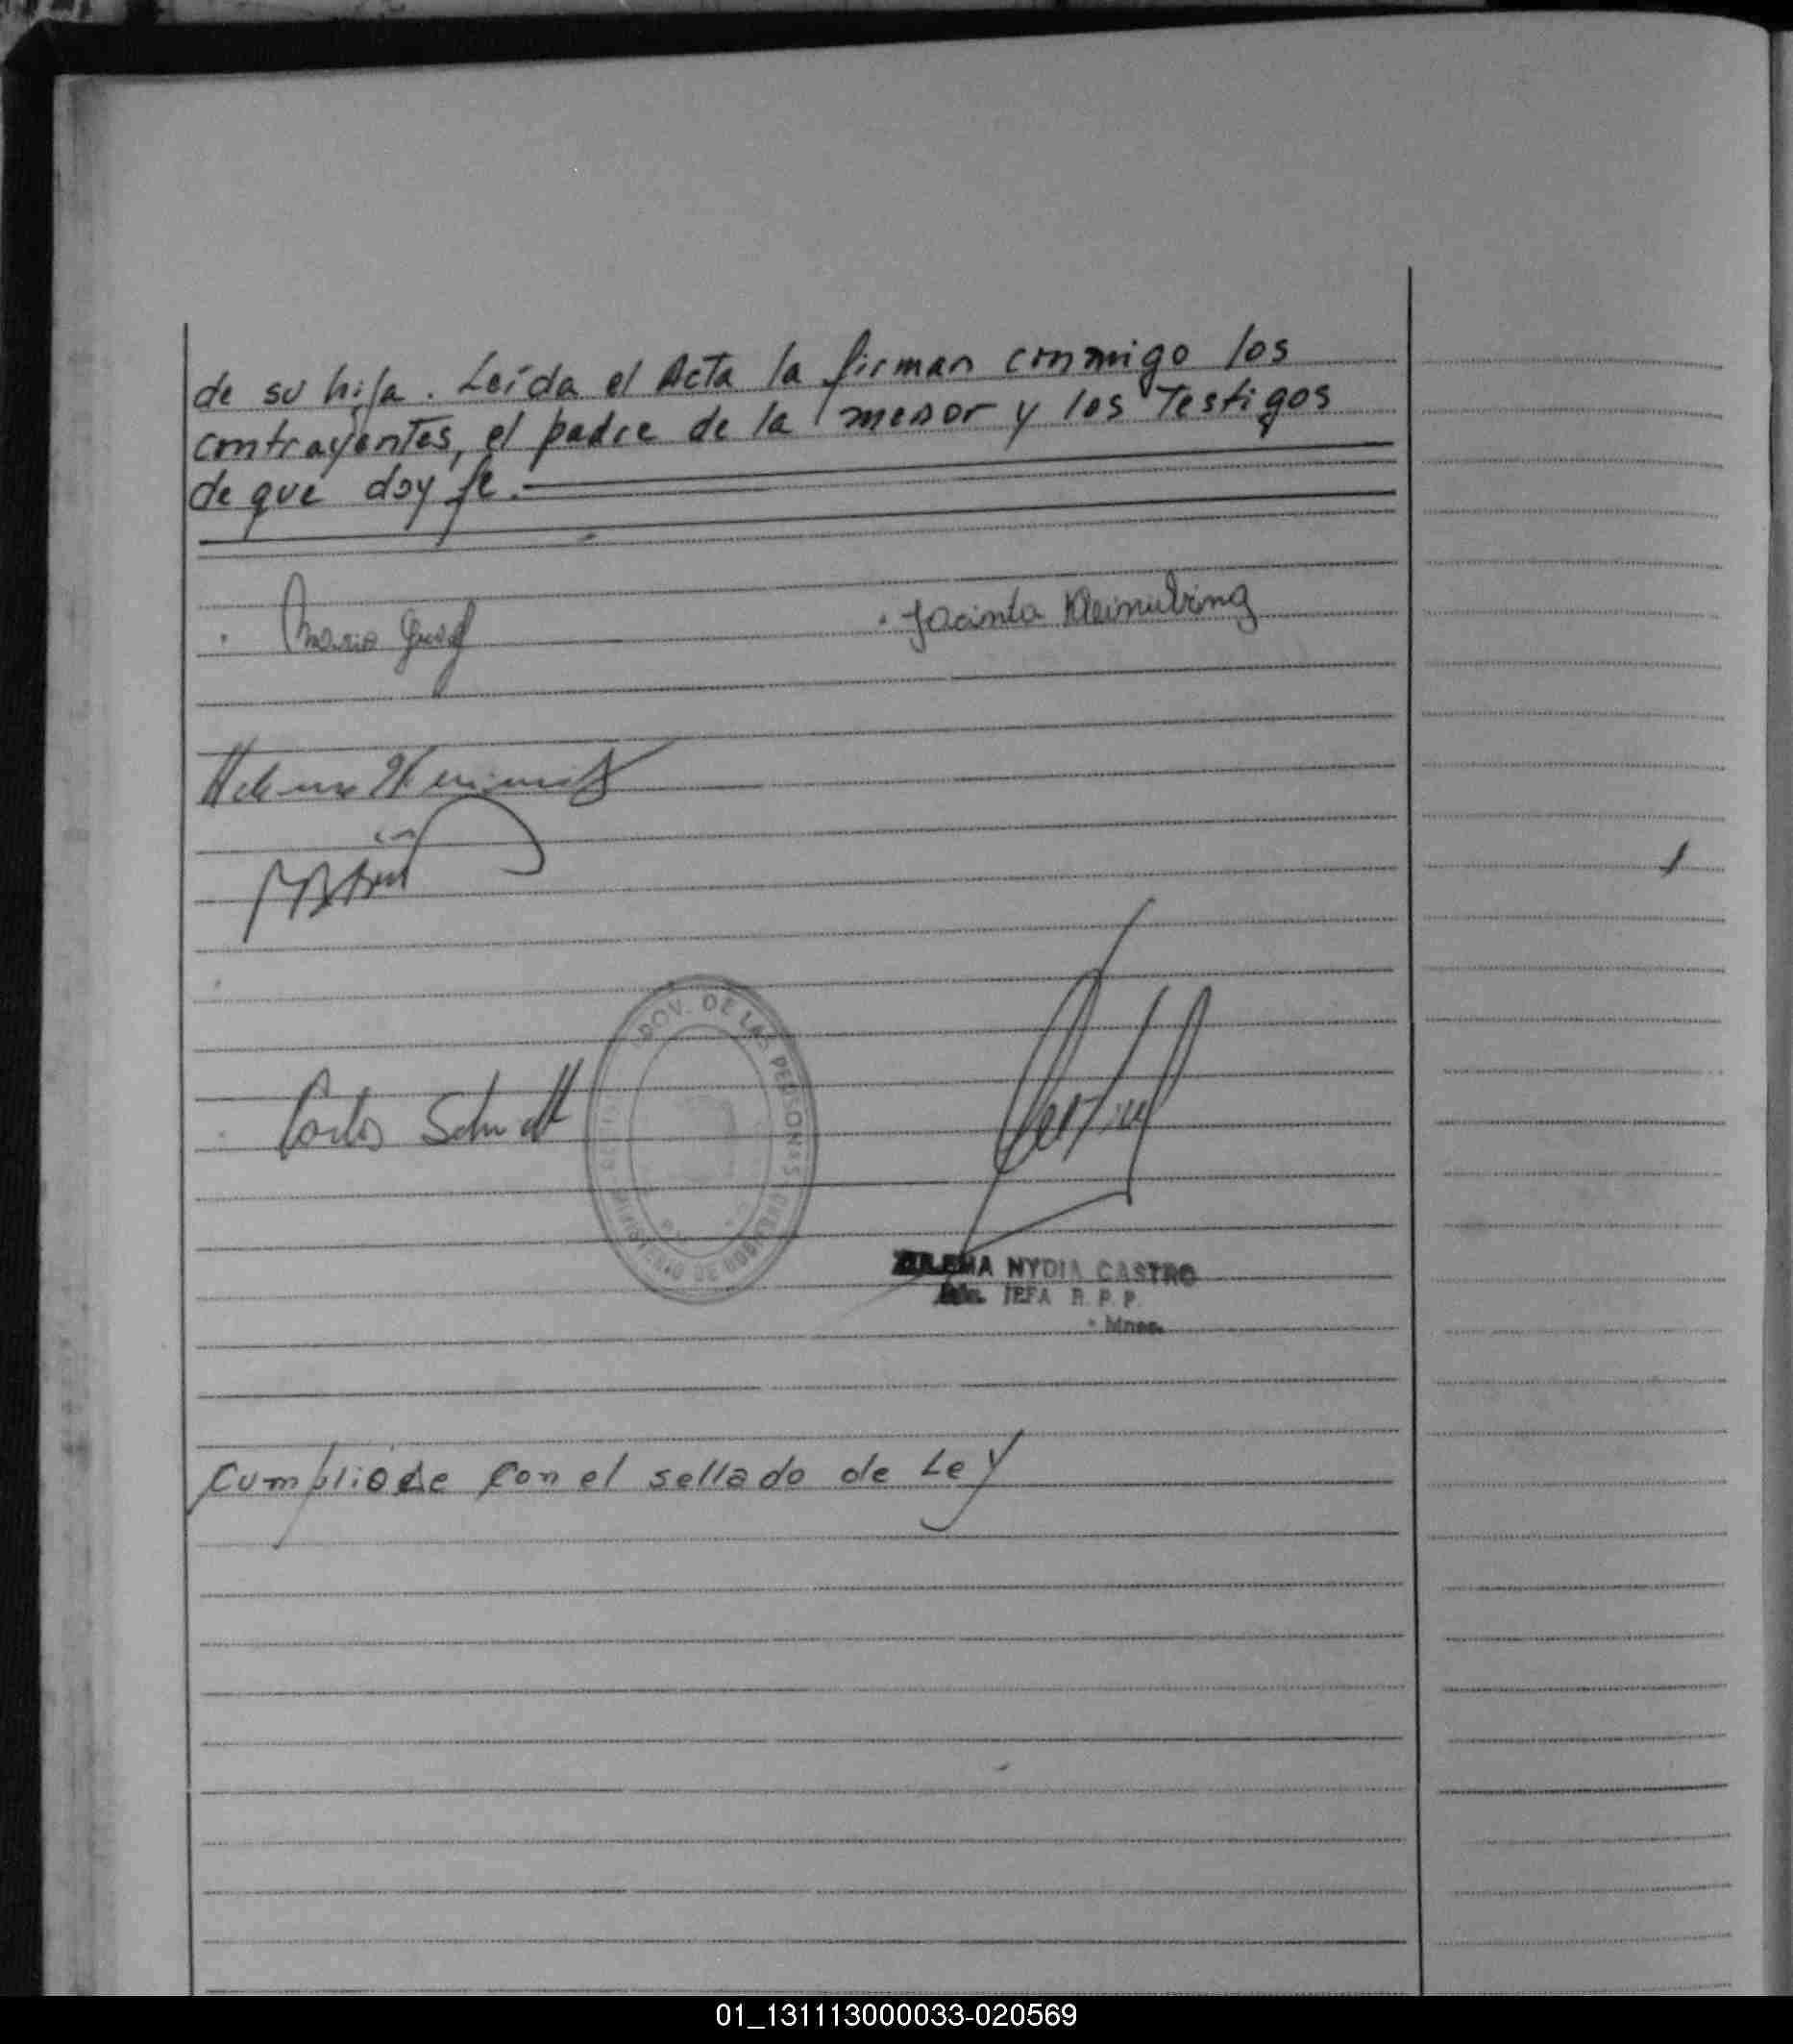 de su hija. Leída el Acta la firman conmigo los
contrayentes, el padre de la menor y los Testigos
de que doy fe.
Mario
Jacinta Kleinubing
Carlos Schmidt
PROV. DE LAS PERSONAS
MINISTERIO DE GOBIERNO
ZULEMA NYDIA CASTRO
JEFA R. P. P.
Mnes.
Cumpliose con el sellado de Ley
01_131113000033-020569